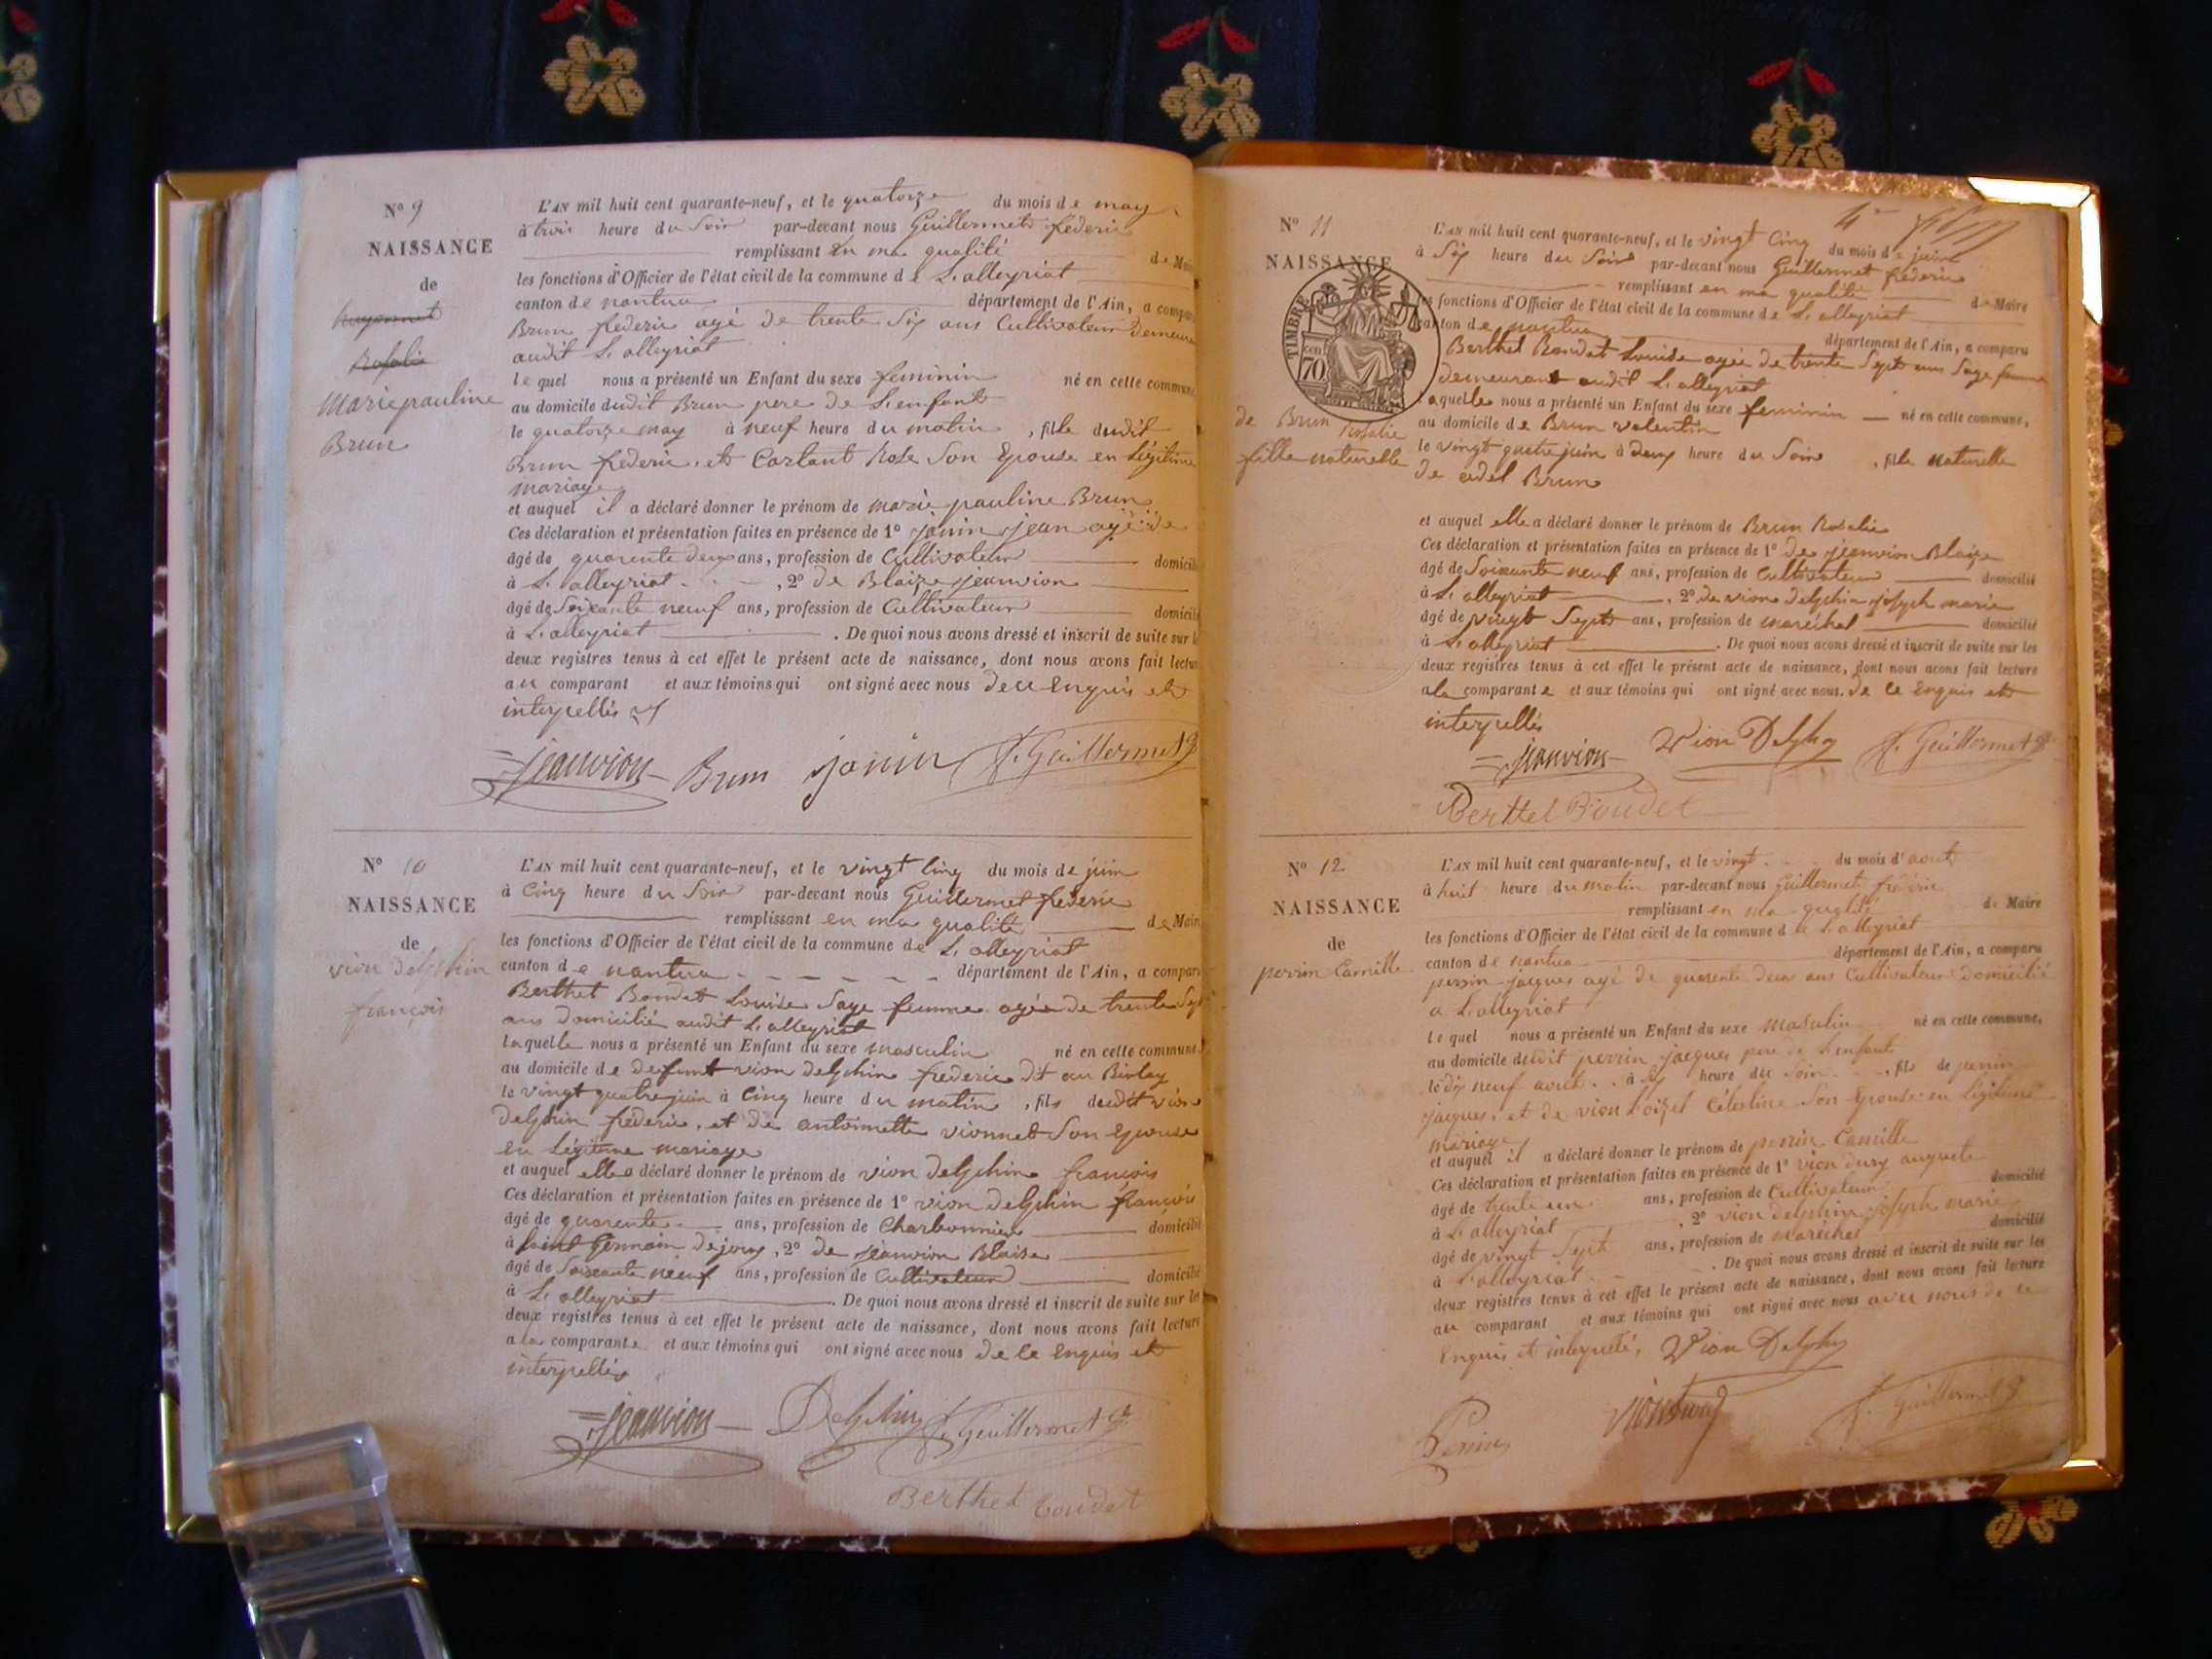 N° 9
NAISSANCE
de
Rosalie
Marie pauline
Brun
L'AN mil huit cent quarante-neuf, et le quatorze du mois de may
à trois heure du Soir par-devant nous Guillermet frederic
remplissant en ma qualité de Mair
les fonctions d'Officier de l'état civil de la commune de L. alleyriat
canton de nantua département de l'Ain, a compar
Brun frederic agé de trente Six ans Cultivateur Demeur
audit L. alleyriat
lequel nous a présenté un Enfant du sexe feminin né en cette commune
au domicile dudit Brun pere de L'enfant
le quatorze may à neuf heure du matin , fille dudit
Brun frederic, et Carlant Rose Son Epouse en Légitime
mariage
et auquel il a déclaré donner le prénom de marie pauline Brun
Ces déclaration et présentation faites en présence de 1° janin jean agé de
âgé de quarente deux ans, profession de Cultivateur domicili
à L. alleyriat , 2° de Blaize jeanvion
âgé de Soixante neuf ans, profession de Cultivateur domicili
à L. alleyriat . De quoi nous avons dressé et inscrit de suite sur l
deux registres tenus à cet effet le présent acte de naissance, dont nous avons fait lectu
au comparant et aux témoins qui ont signé avec nous de ce Enquis et
interpellés
Jeanvion Brun janin f. Guillermet
N° 10
NAISSANCE
de
vion delphin
françois
L'AN mil huit cent quarante-neuf, et le vingt Cinq du mois de juin
à Cinq heure du Soir par-devant nous Guillermet frederic
remplissant en ma qualité de Mair
les fonctions d'Officier de l'état civil de la commune de L. alleyriat
canton de nantua département de l'Ain, a compar
Berthet Bondet Louise Sage femme agée de trente Sep
ans domicilié audit L. alleyriat
laquelle nous a présenté un Enfant du sexe masculin né en cette commune
au domicile de defunt vion delphin frederic dit au Birlay
le vingt quatre juin à Cinq heure du matin , fils dudit vion
delphin frederic, et de antoinette vionnet Son epouse
en Légitime mariage
et auquel elle a déclaré donner le prénom de vion delphin françois
Ces déclaration et présentation faites en présence de 1° vion delphin françois
âgé de quarente ans, profession de Charbonnier domicilié
à Saint Germain de joux, 2° de jeanvion Blaise
âgé de Soixante neuf ans, profession de Cultivateur domicilié
à L. alleyriat . De quoi nous avons dressé et inscrit de suite sur les
deux registres tenus à cet effet le présent acte de naissance, dont nous avons fait lecture
a la comparante et aux témoins qui ont signé avec nous de ce Enquis et
interpellés
Jeanvion Delphin f. Guillermet
Berthet Bondet
N° 11
NAISSANCE
TIMBRE
70
de Brun Rosalie
fille naturelle
L'AN mil huit cent quarante-neuf, et le vingt Cinq du mois de juin
à Six heure du Soir par-devant nous Guillermet frederic
remplissant en ma qualité de Maire
les fonctions d'Officier de l'état civil de la commune de L. alleyriat
canton de nantua département de l'Ain, a comparu
Berthet Bondet Louise agée de trente Sept ans Sage femme
demeurant audit L. alleyriat
laquelle nous a présenté un Enfant du sexe feminin né en cette commune,
au domicile de Brun valentin
le vingt quatre juin à deux heure du Soir , fille naturelle
de adel Brun
et auquel elle a déclaré donner le prénom de Brun Rosalie
Ces déclaration et présentation faites en présence de 1° de jeanvion Blaize
âgé de Soixante neuf ans, profession de Cultivateur domicilié
à L. alleyriat , 2° de vion delphin joseph marie
âgé de vingt Sept ans, profession de maréchal domicilié
à L. alleyriat . De quoi nous avons dressé et inscrit de suite sur les
deux registres tenus à cet effet le présent acte de naissance, dont nous avons fait lecture
a la comparante et aux témoins qui ont signé avec nous. de ce Enquis et
interpellés
Jeanvion Vion Delphin f. Guillermet
Berthet Bondet
N° 12
NAISSANCE
de
perrin Camille
L'AN mil huit cent quarante-neuf, et le vingt du mois d'aout
à huit heure du matin par-devant nous Guillermet frederic
remplissant en ma qualité de Maire
les fonctions d'Officier de l'état civil de la commune de L. alleyriat
canton de nantua département de l'Ain, a comparu
perrin jacques agé de quarente deux ans Cultivateur domicilié
a L. alleyriat
lequel nous a présenté un Enfant du sexe masculin né en cette commune,
au domicile dudit perrin jacques pere de L'enfant
le dix neuf aout à Six heure du Soir , fils de perrin
jacques, et de vion Loizet Célestine Son Epouse en Légitime
mariage
et auquel il a déclaré donner le prénom de perrin Camille
Ces déclaration et présentation faites en présence de 1° vion dury auguste
âgé de trente un ans, profession de Cultivateur domicilié
à L. alleyriat , 2° vion delphin joseph marie
âgé de vingt Sept ans, profession de maréchal domicilié
à L. alleyriat . De quoi nous avons dressé et inscrit de suite sur les
deux registres tenus à cet effet le présent acte de naissance, dont nous avons fait lecture
au comparant et aux témoins qui ont signé avec nous avec nous de ce
Enquis et interpellé, Vion Delphin
Perrin viondury f. Guillermet